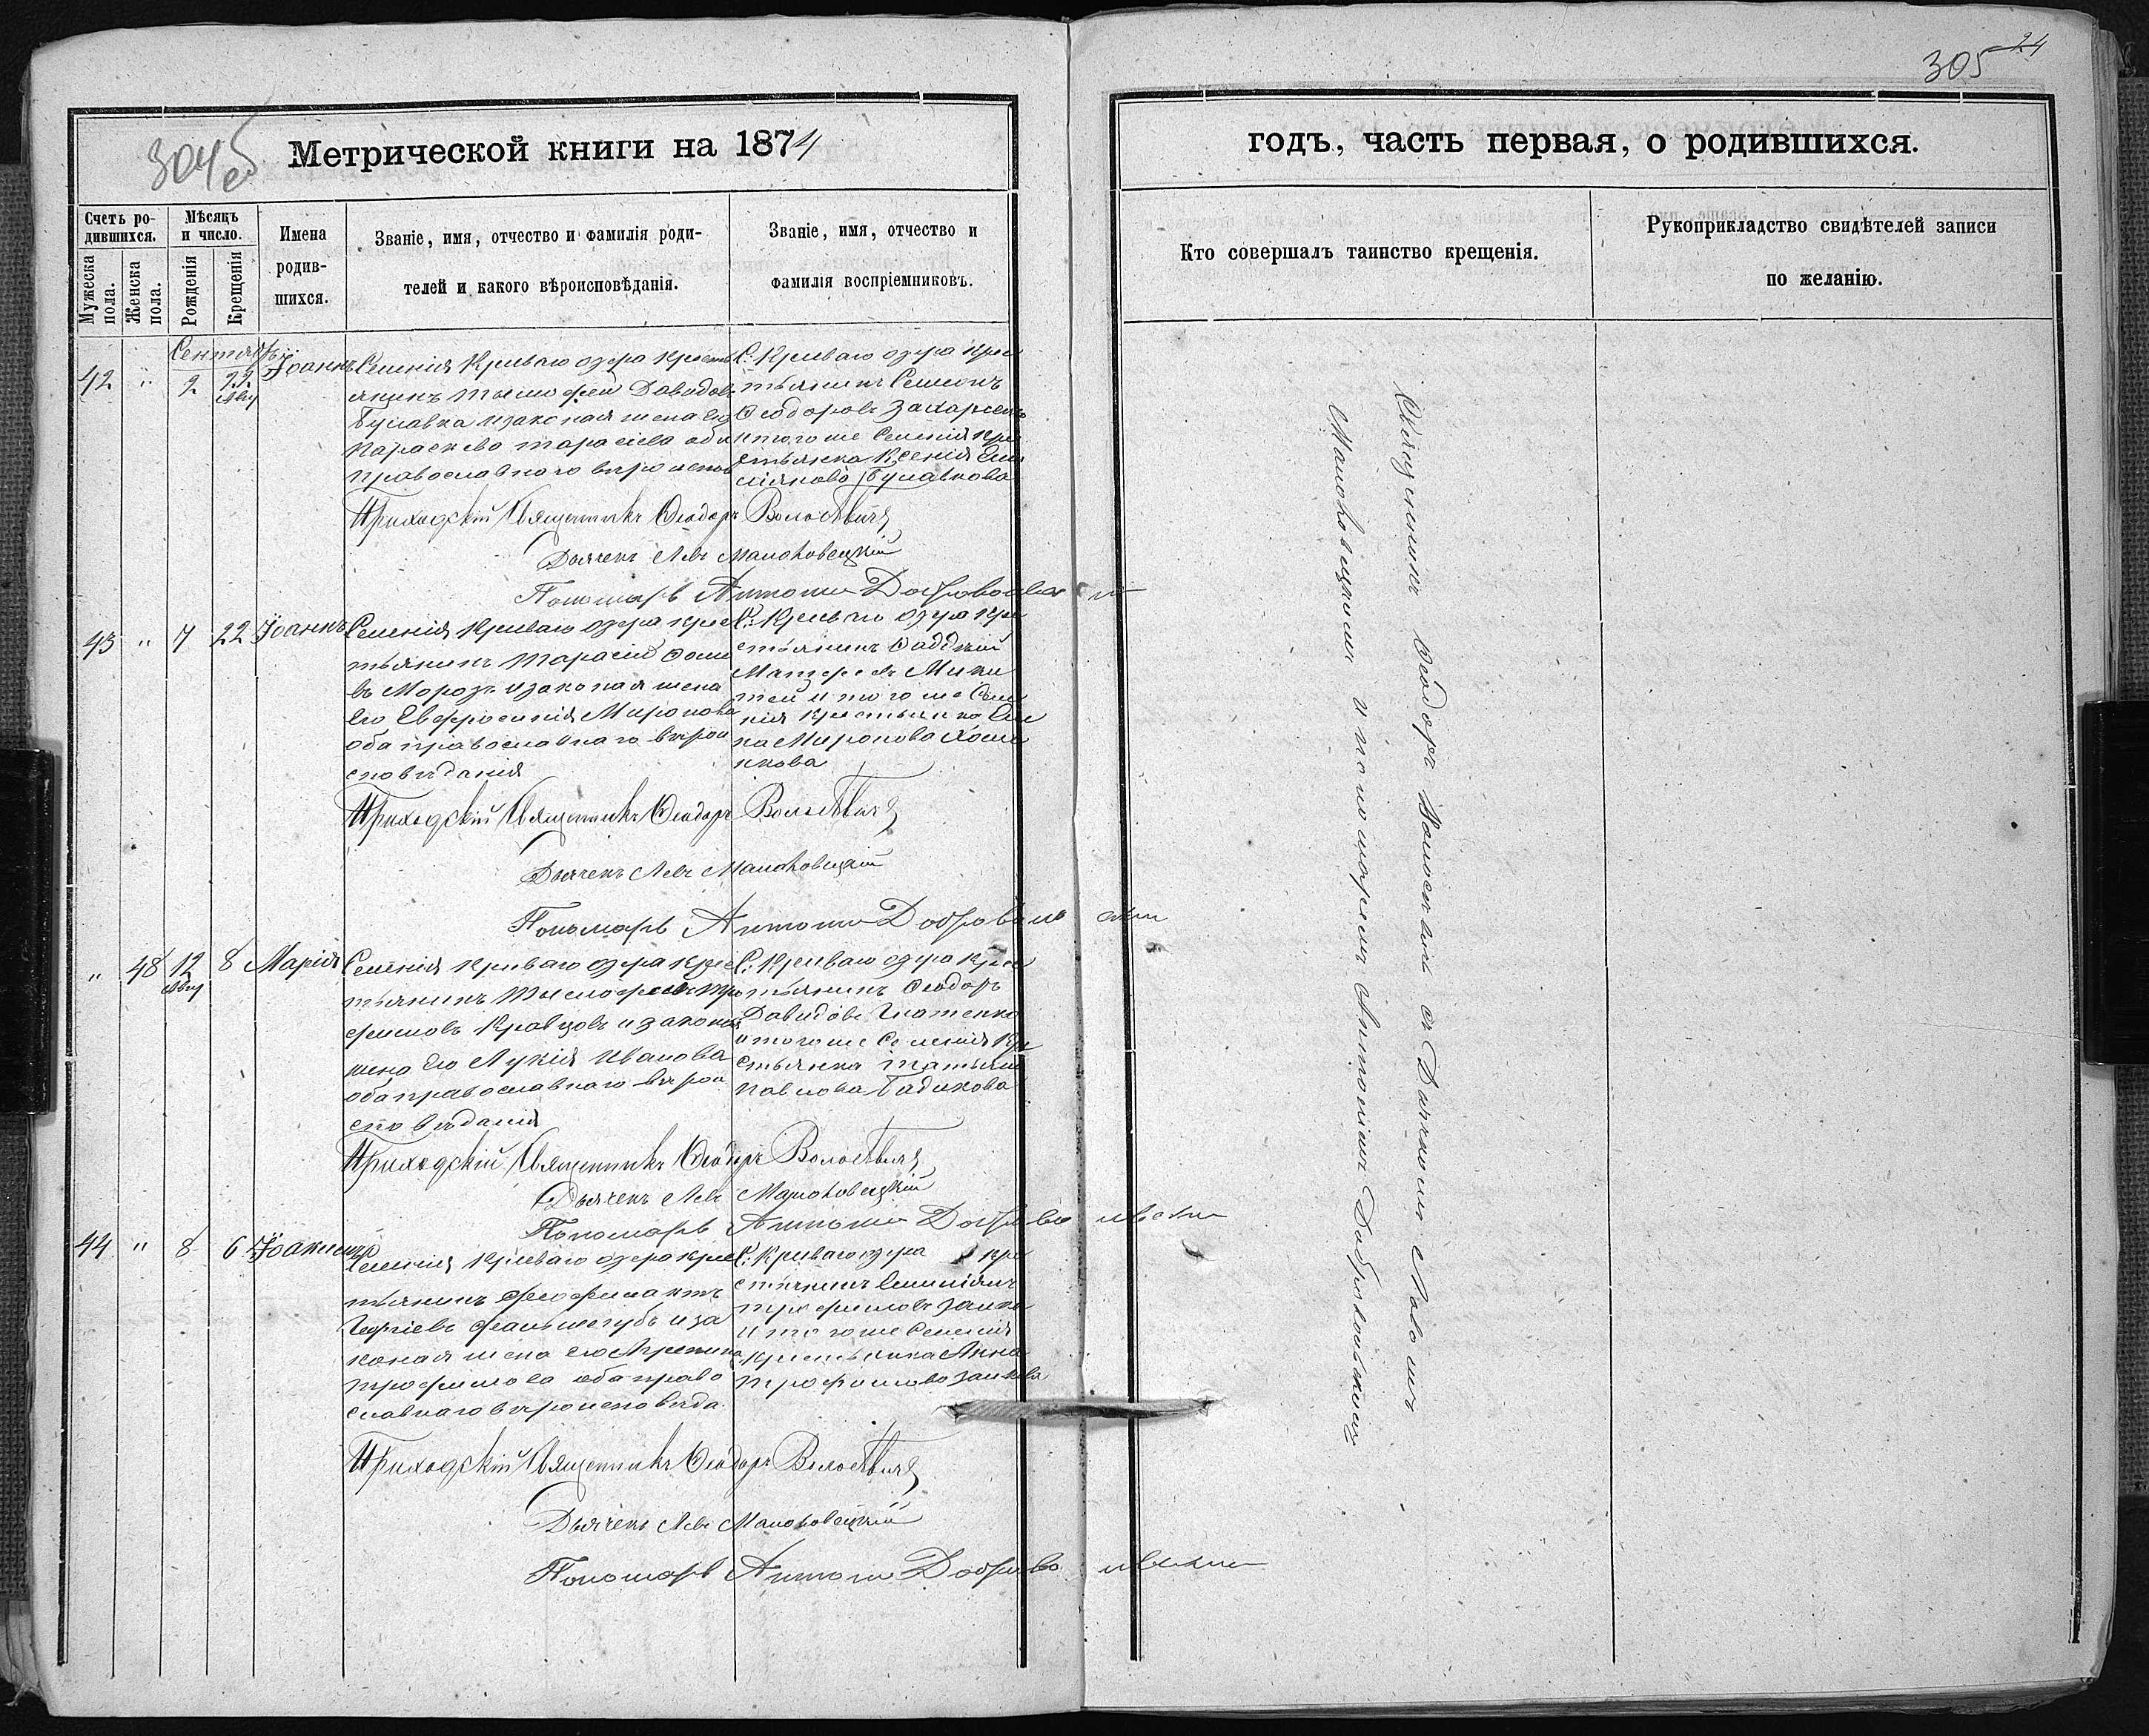 304 об
Метрической книги на 1874
Счетъ ро-
дившихся.
Мѣсяцъ
и число.
Мужеска
пола.
Женска
пола.
Рожденія
Крещенія
Имена
родив-
шихся.
Званіе, имя, отчество и фамилія роди-
телей и какого вѣроисповѣданія.
Званіе, имя, отчество и
фамилія воспріемниковъ.
Сентябрь
42 " 2 22 Іоаннъ
Селенія Криваго озера кресть
янинъ Тимофей Давидовъ
Булавка изаконая жена его
Параскева Тарасіева оба
православнаго вѣроиспов
С: Криваго озера крес
тьянинъ Симеонъ
Феодоровъ
итогоже Селенія кре
стьянка Ксенія
Булавкова
Приходскій Священникъ Феодоръ Волосевичъ
Дьячекъ Левъ Маньковецкій
Пономарь Антоній Добровольскій
43 " 7 22 Іоаннъ
Селенія Криваго озера крес
тьянинъ Тарасій
въ Морозъ изаконая жена
его Евфросинія Миронова
оба православнаго вѣрои
сповѣданія
С: Криваго озера кре
стьянинъ Фаддей
итогоже Селе
нія крестьянка Еле
на Миронова
Приходскій Священникъ Феодоръ Волосевичъ
Дьячекъ Левъ Маньковецкій
Пономарь Антоній Добровольскій
" 48 12 8 Марія
Селенія Криваго озера крес
тьянинъ Тимофей Тро
фимовъ Кравцовъ изаконая
жена его Лукія Иванова
оба православнаго вѣрои
сповѣданія
С: Криваго озера крес
тьянинъ Феодоръ
Давидовъ
итогоже Селенія кре
стьянка Татьяна
Павлова
Приходскій Священникъ Феодоръ Волосевичъ
Дьячекъ Левъ Маньковецкій
Пономарь Антоній Добровольскій
44 " 8 6 Іоакимъ
Селенія Криваго озера крес
тьянинъ Феофилактъ
Георгіевъ иза
коная жена его
Трофимова оба право
славнаго вѣроисповѣда
С: Криваго озера кре
стьянинъ Емиліанъ
Трофимовъ Заика
итогоже Селенія
крестьянка Анна
Трофимова
Приходскій Священникъ Феодоръ Волосевичъ
Дьячекъ Левъ Маньковецкій
Пономарь Антоній Добровольскій
305 24
годъ, часть первая, о родившихся.
Кто совершалъ таинство крещенія.
Рукоприкладство свидѣтелей записи
по желанію.
Священникъ Феодоръ Волосевичъ съ Дьячкомъ
Маньковецкимъ и пономаремъ Антоніемъ Добровольскимъ